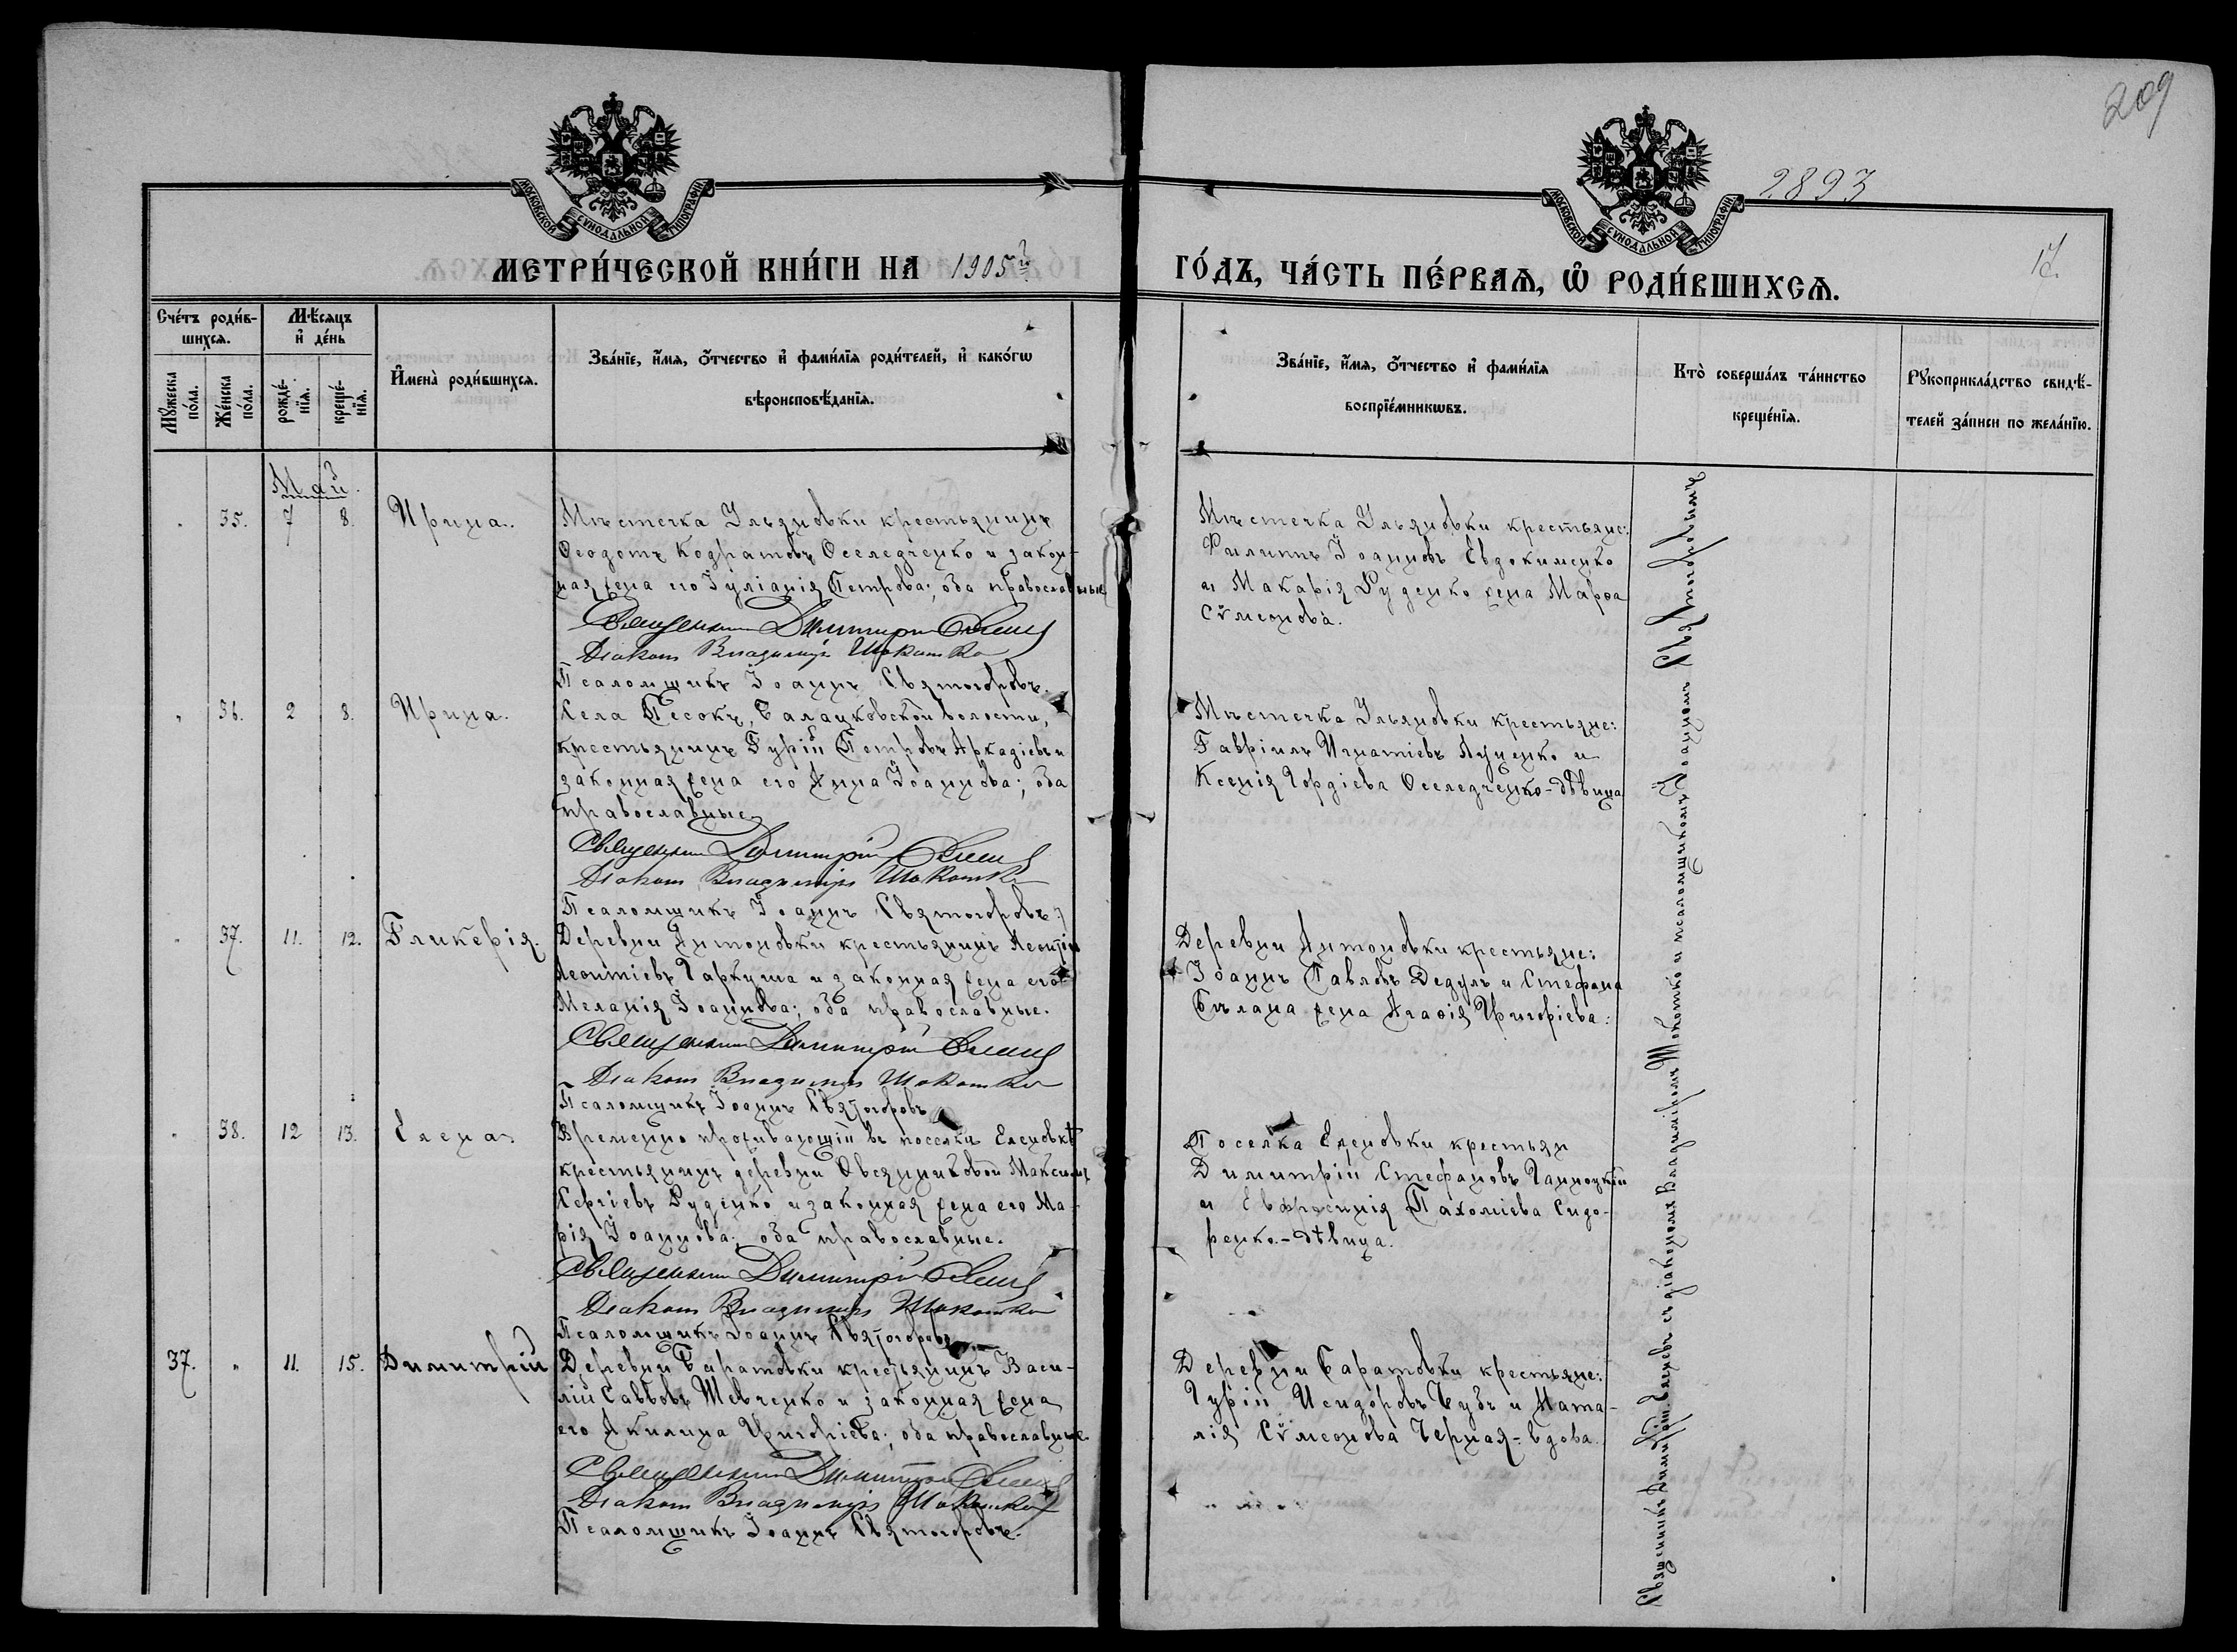 209
2893
17.
МОСКОВСКОЙ СУНОДАЛЬНОЙ ТИПОГРАФІИ
МОСКОВСКОЙ СУНОДАЛЬНОЙ ТИПОГРАФІИ
МЕТРИ́ЧЕСКОЙ КНИ́ГИ НА 1905й
ГО́ДЪ, ЧА́СТЬ ПЕ́РВАѦ, Ѡ҆ РОДИ́ВШИХСѦ.
Сче́тъ роди́в-
шихсѧ.
Мѣ́сѧцъ
и҆ де́нь
Мꙋ́жеска
по́ла.
Же́нска
по́ла.
рожде́-
нїѧ.
креще́-
нїѧ.
И҆мена̀ роди́вшихсѧ.
Зва́нїе, и҆́мѧ, ѻ҆́тчество и҆ фами́лїѧ роди́телей, и҆ како́гѡ
вѣроисповѣ́данїѧ.
Зва́нїе, и҆́мѧ, ѻ҆́тчество и҆ фами́лїѧ
воспрїе́мникѡвъ.
Кто̀ соверша́лъ та́инство
креще́нїѧ.
Рꙋкоприкла́дство свидѣ́-
телей за́писи по жела́нїю.
Май.
35. 7 8. Ирина.
Мѣстечка Ульяновки крестьянинъ
Ѳеодотъ Кодратовъ Оселедченко и закон-
ная жена его Іуліанія Петрова; оба православные
Священникъ Димитрій
Діаконъ Владиміръ Шокотко
Псаломщикъ Іоаннъ Святогоровъ.
Мѣстечка Ульяновки крестьяне:
Филиппъ Іоанновъ Евдокименко
и Макарія Руденко жена Марѳа
Сѵмеонова.
36. 2 8. Ирина.
Села Песокъ, волости,
крестьянинъ Гурій Петровъ Аркадіевъ и
законная жена его Анна Іоаннова; оба
православные
Священникъ Димитрій
Діаконъ Владиміръ Шокотко
Псаломщикъ Іоаннъ Святогоровъ.
Мѣстечка Ульяновки крестьяне:
Гавріилъ Игнатіевъ Луценко и
Ксенія Гордіева Оселедченко-дѣвица
37. 11. 12. Гликерія.
Деревни Антоновки крестьянинъ Леонтій
Леонтіевъ Гаркуша и законная жена его
Меланія Іоаннова; оба православные.
Священникъ Димитрій
Діаконъ Владиміръ Шокотко
Псаломщикъ Іоаннъ Святогоровъ
Деревни Антоновки крестьяне:
Іоаннъ Павловъ Дедулъ и Стефана
Бѣлана жена Агаѳія Григоріева:
38. 12 13. Елена.
Временно проживающій въ поселкѣ Еленовкѣ
крестьянинъ деревни Овсянниковой Максимъ
Сергіевъ Руденко и законная жена его Ма-
рія Іоаннова; оба православные.
Священникъ Димитрій
Діаконъ Владиміръ Шокотко
Псаломщикъ Іоаннъ Святогоровъ
Поселка Еленовки крестьян
Димитрій Стефановъ
и Евфросинія Пахоміева Сидо-
ренко-дѣвица.
37. 11. 15. Димитрій
Деревни Баратовки крестьянинъ Васи-
лій Саввовъ Шевченко и законная жена
его Акилина Григоріева; оба православные
Священникъ Димитрій
Діаконъ Владиміръ Шокотко
Псаломщикъ Іоаннъ Святогоровъ.
Деревни Баратовки крестьяне:
Гурій Исидоровъ Чубъ и Ната-
лія Сѵмеонова Черная-вдова.
Священникъ Димитрій съ діакономъ Владиміромъ Шокотко и псаломщикомъ Іоанномъ Святогоровымъ